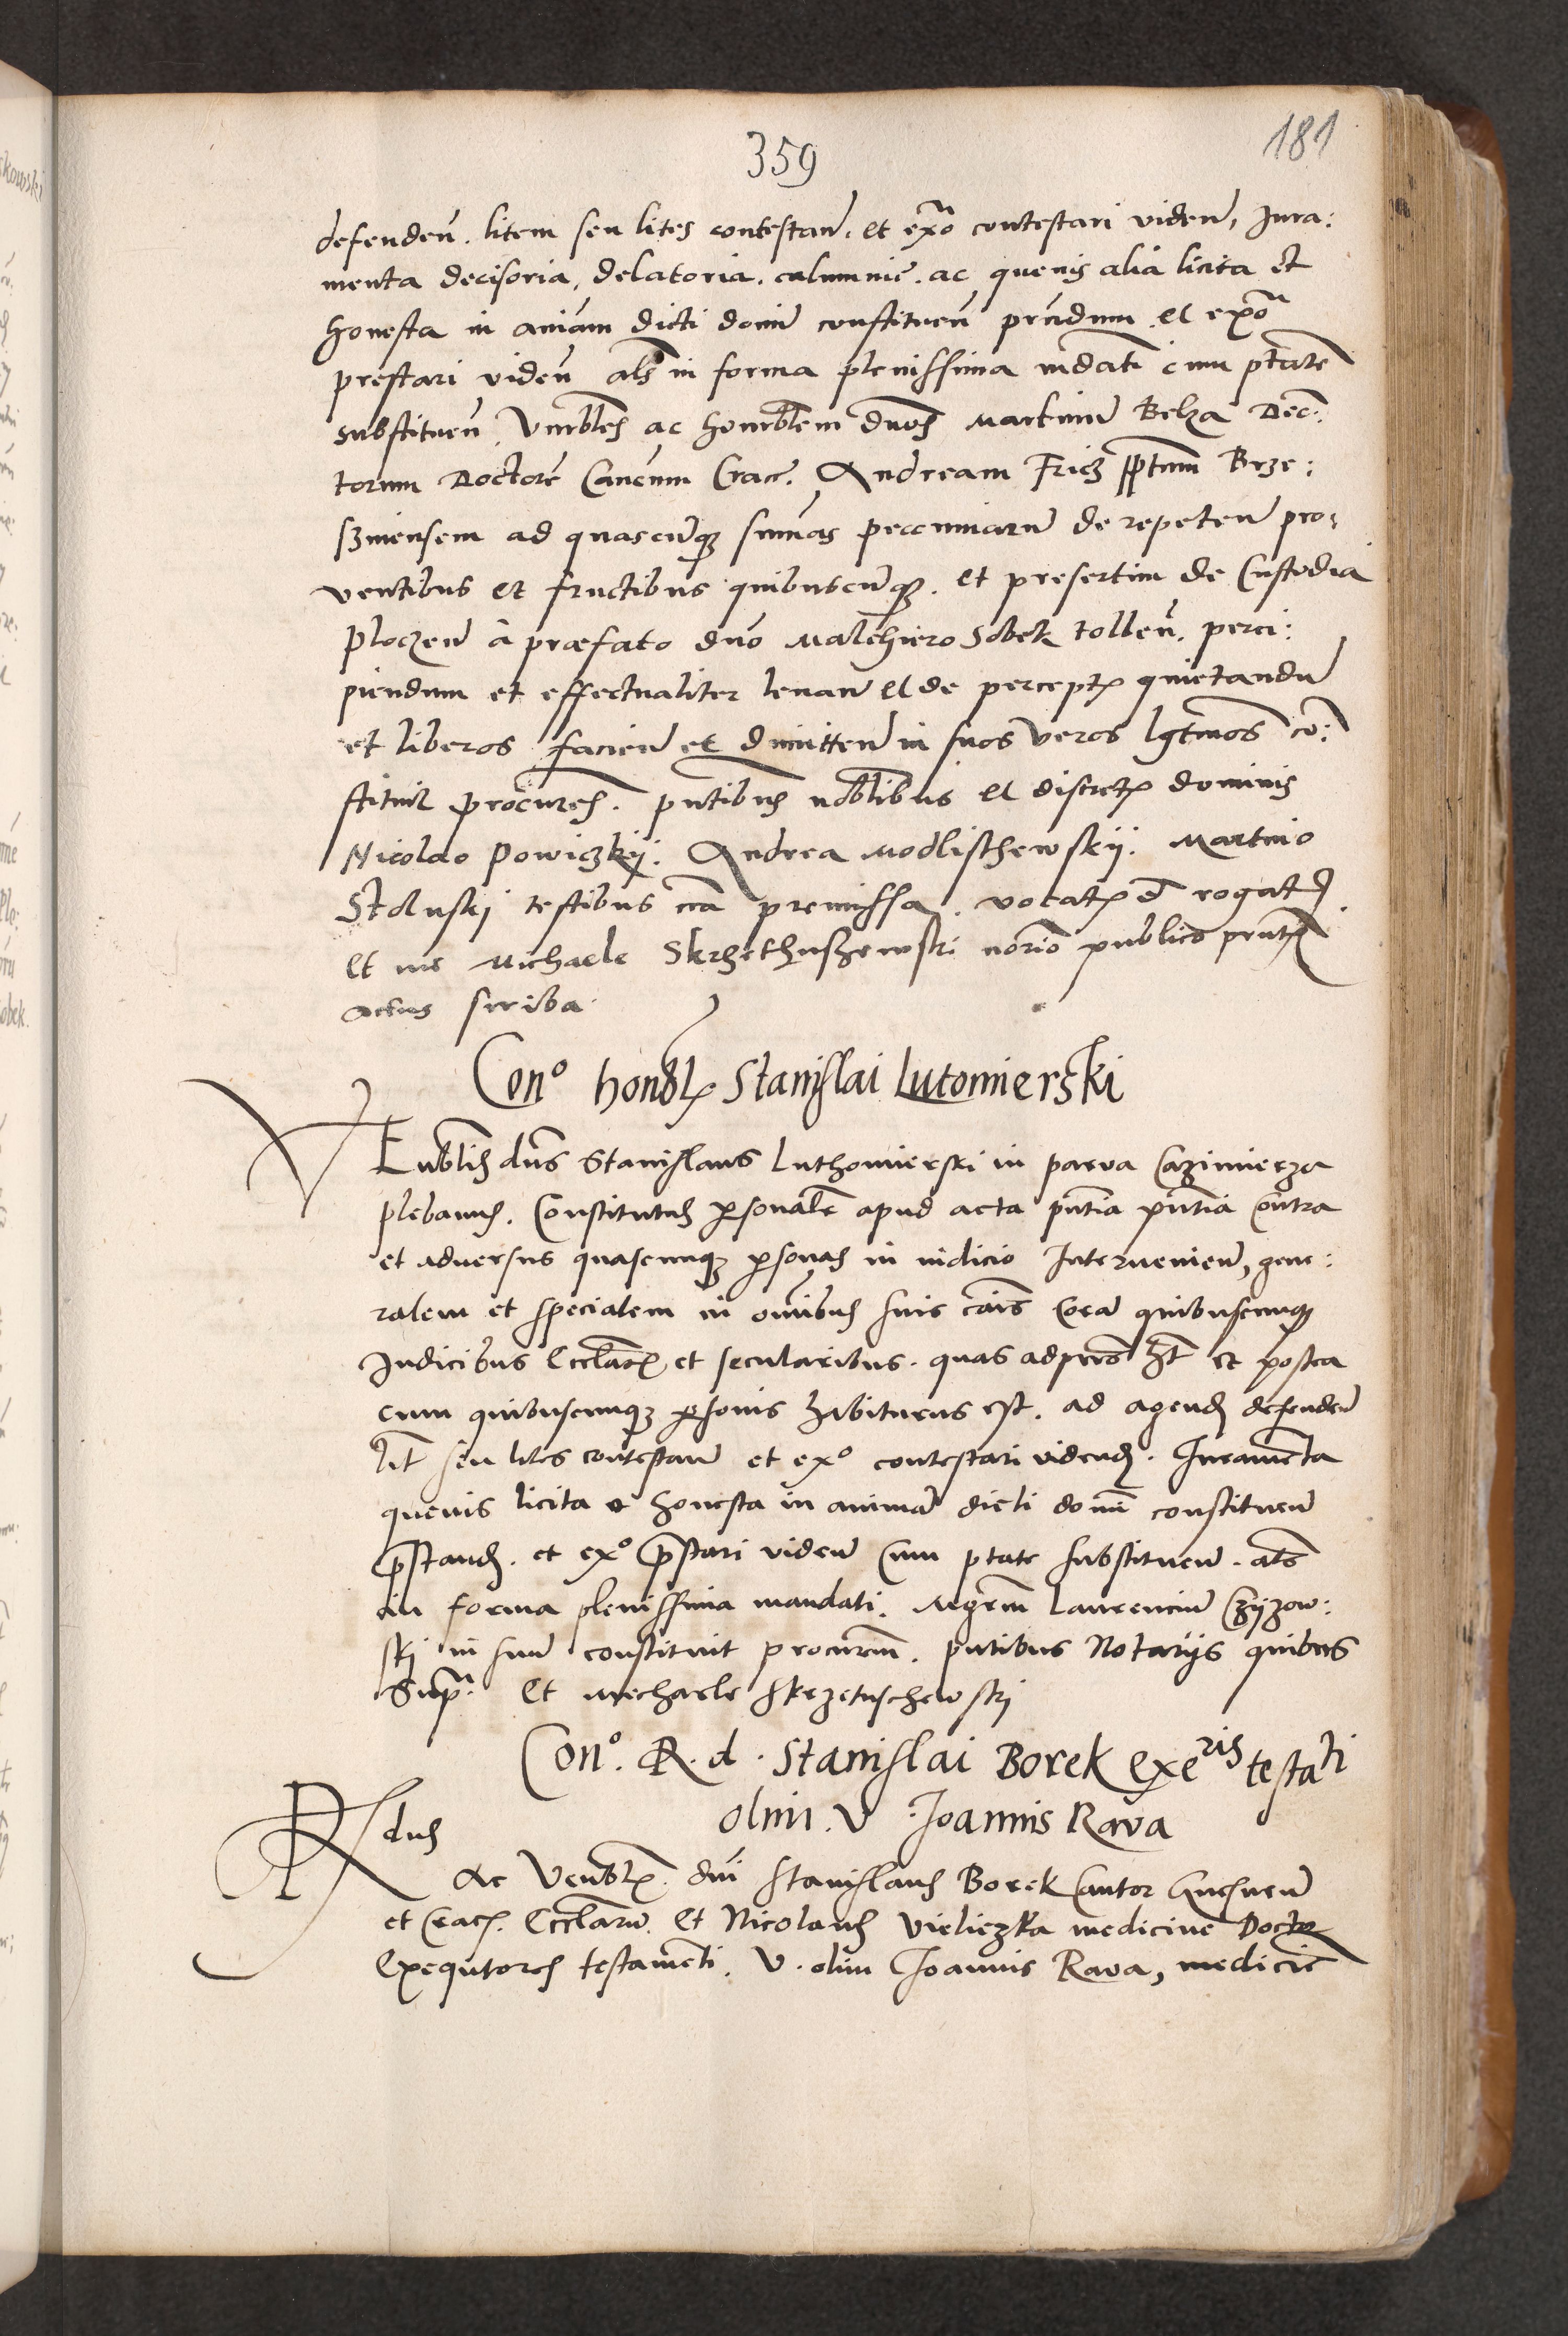 359
181
defenden̄. litem seu lites contestan̄. et ex̄o contestari viden̄, Jura:
menta decisoria, delatoria. calumnie. ac quevis alia licita et
honesta in aniām dicti domi constituen̄ prn̄dum et ex̄o
prestari viden̄ als̄ in forma plenissima mdati cum ptate
substituen̄. Vnrbles ac honrblem dnos Martinū Belza Dec:
torum Doctorē Canc̄um Crac̄. Andream Fricz pptum Brze:
sziniensem ad quascūq sum̄as pecuniarū de repeten̄ pro:
ventibus et fructibus quibuscūq. et presertim de Custodia
Ploczen̄ à præfato dno Malchiero Sobek tollen̄. perci:
piendum et effectualiter levan̄ et de percept quietandū
et liberos facien̄ et dimitten̄ in suos veros lgtmos co:
stituit procures. pntibus nobilibus et discret dominis
Nicolao Powiczkij. Andrea Modlischewskij. Martino
Stoluski testibus cca premissa. vocat et rogat
et me Michaele Skrzethuszewski norio publico prnt
actus scriba.
Con° honbl Stanislai Lutomierski
VEnblis dns Stanislaus Luthomierski in parva Cazimierza
plebanus. Constitutus psonalē apud acta pntia pntia Contra
et adversus quascunq psonas in iudicio Intervenien̄, gene:
ralem et specialem in omibus suis cais Cora quibuscunq
Judicibus Ecclas et secularibus. quas adpns ht et postea
cum quibuscunq psonis habiturus est. ad agend defenden̄
lit seu lites contestan̄ et ex° contestari videnđ. Juramenta
quevis licita et honesta in animā dicti domi constituen̄
pstanđ. et ex° pstari viden̄ Cum ptate substituen̄. als
in forma plenissima mandati. Mgrm Laurenciū Czijzow:
skj in suū constituit procurem. pntibus Notarijs quibus
Supra. Et Michaele Skrzetuschewski
Con°. R. d. Stanislai Borek exeris testati
olim. V Joannis Rava
Rdus
Ac Venbl. dni Stanislaus Borek Cantor Gnesnen̄
et Crac. Ecclarū. Et Nicolaus Vieliczka medicine Doctor
Exequtores testamenti. V. olim Joannis Rava, medicie